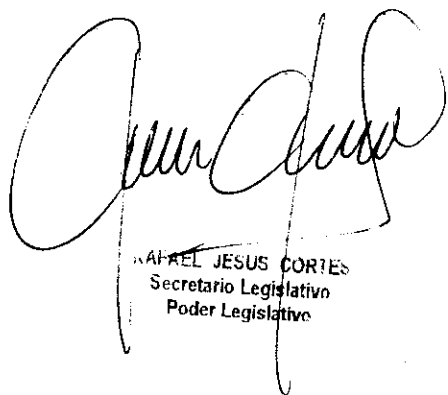 RAFAEL JESUS CORTES
Secretario Legislativo
Poder Legislativo